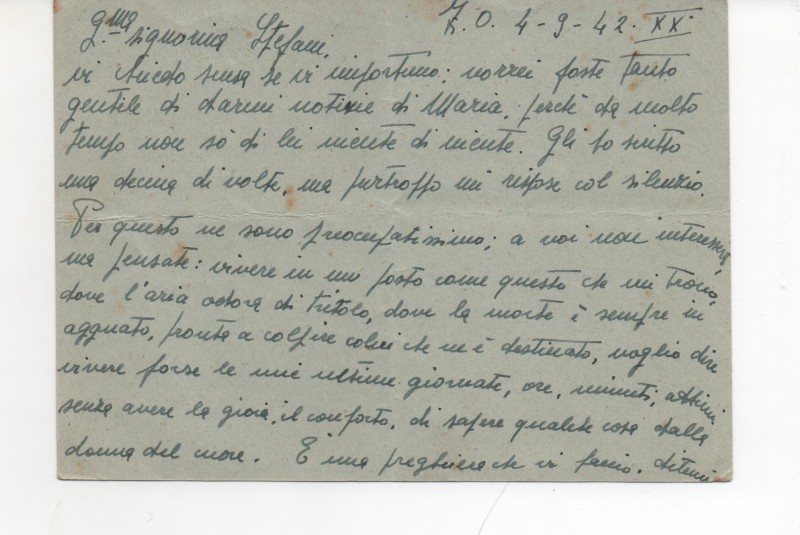 Z.O. 4-9-42. XX°
G.ma signorina Stefani,
vi chiedo scusa se vi importuno: vorrei foste tanto
gentile di darmi notizie di Maria, perchè da molto
tempo non sò di lei niente di niente. Gli ho scritto
una decina di volte, ma purtroppo mi rispose col silenzio.
Per questo ne sono preoccupatissimo; a voi non interesserà,
ma pensate: vivere in un posto come questo che mi trovo,
dove l'aria odora di tritolo, dove la morte è sempre in
agguato, pronta a colpire colui che ne è destinato, voglio dire
vivere forse le mie ultime giornate, ore, minuti, attimi
senza avere la gioia, il conforto, di sapere qualche cosa dalla
donna del cuore. È una preghiera che vi faccio. ditemi